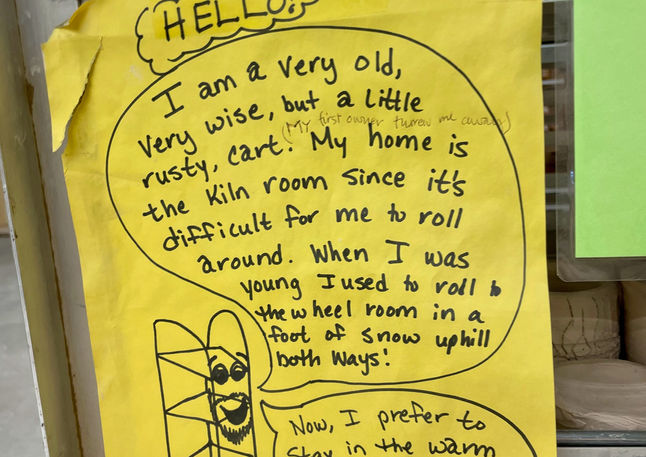 HELLO!
I am a very old,
very wise, but a little
(My first owner threw me away)
rusty, cart. My home is
the Kiln room since it's
difficult for me to roll
around. When I was
young I used to roll to
the wheel room in a
foot of snow uphill
both ways!
Now, I prefer to
stay in the warm